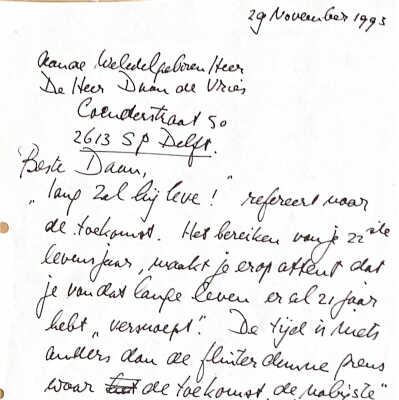 29 November 1993
Aan de Weledelgeboren Heer
De Heer Daan de Vries
Coenderstraat 50
2613 SP Delft.
Beste Daan,
"lang zal hij leve!" refereert naar
de toekomst. Het bereiken van je 22ste
levensjaar, maakt je erop attent dat
je van dat lange leven er al 21 jaar
hebt "versnoept". De tijd is niets
anders dan de flinterdunne grens
waar de toekomst, de nabijste"